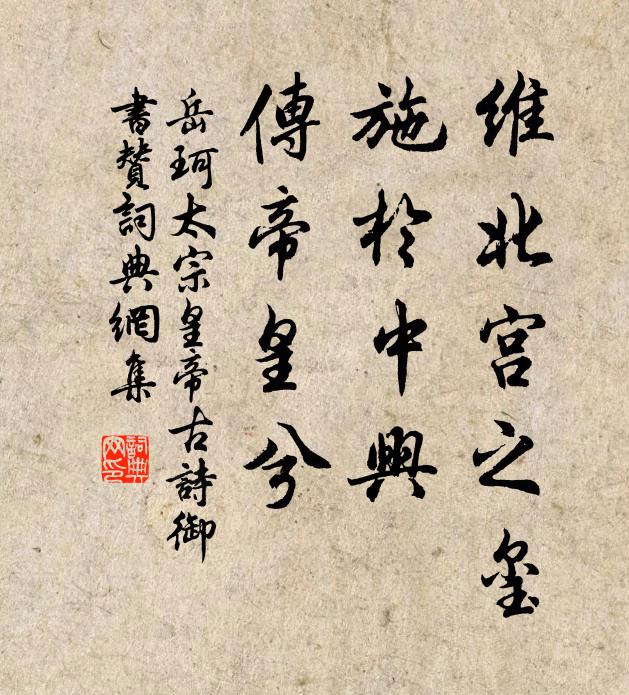 維北宮之璽
施於中興
傳帝皇兮
岳珂太宗皇帝古詩御
書贊詞典網集
詞典
网印